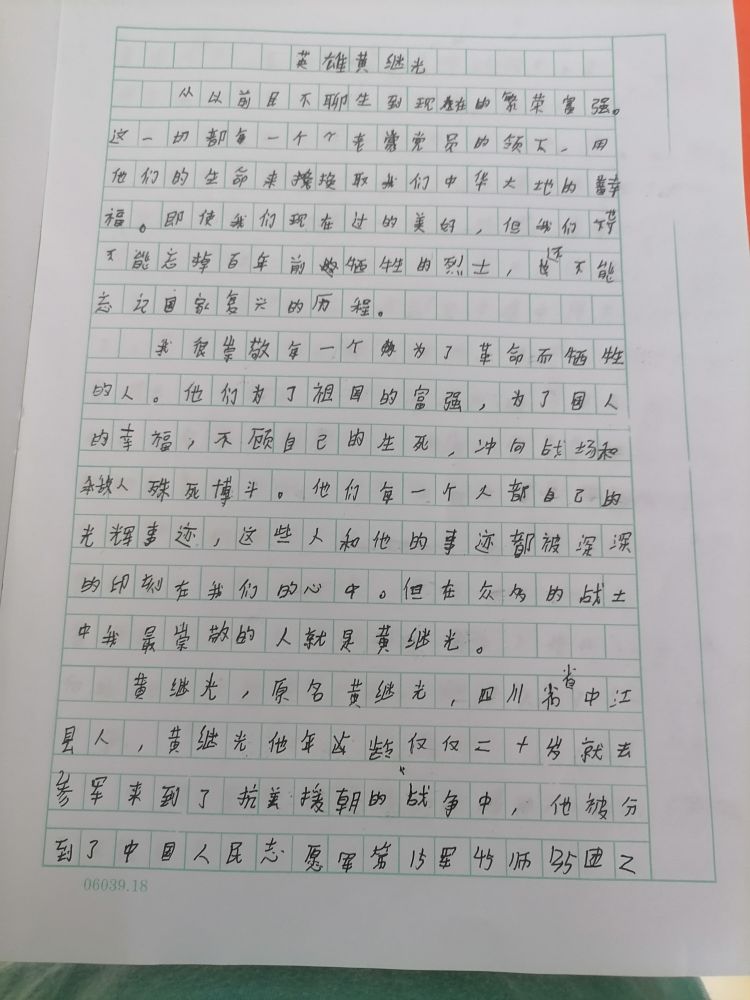 英雄黄继光
从以前民不聊生到现在的繁荣富强。
这一切都每一个个老党员的领下,用
他们的生命来换取我们中华大地的幸
福。即使我们现在过的美好,但我们
不能忘掉百年前牺牲的烈士,还不能
忘记国家复兴的历程。
我很崇敬每一个为了革命而牺牲
的人。他们为了祖国的富强,为了国人
的幸福,不顾自己的生死,冲向战场和
杀敌人殊死博斗。他们每一个人都自己的
光辉事迹,这些人和他的事迹都被深深
的印刻在我们的心中。但在众多的战士
中我最崇敬的人就是黄继光。
黄继光,原名黄继光,四川省中江
县人,黄继光他年龄仅仅二十岁就去
参军来到了抗美援朝的战争中,他被分
到了中国人民志愿军第15军45师135团乙
06039.18